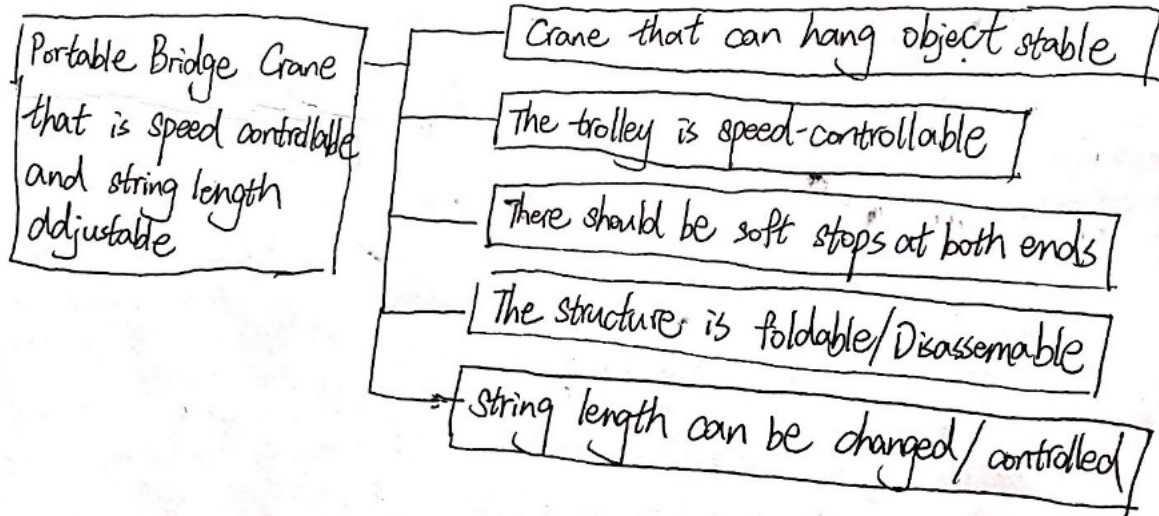 Portable Bridge Crane
that is speed controllable
and string length
ddjustable
Crane that can hang object stable
The trolley is speed-controllable
There should be soft stops at both ends
The structure is foldable/Disassemable
String length can be changed/controlled